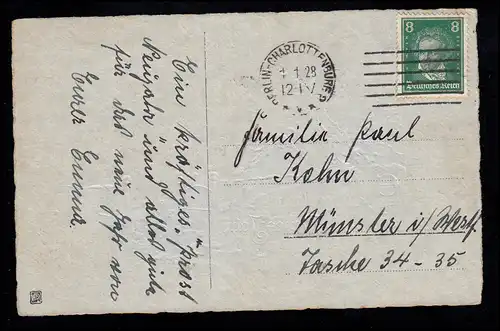 Ein kräftiges „Prost
Neujahr“ und alles gute
für das neue Jahr von
Eurer Emma.
BERLIN-CHARLOTTENBURG
1.1.28
12-1 V
8 8
Deutsches Reich
Familie Paul
Kohn
Münster i/Westf.
Tasche 34-35